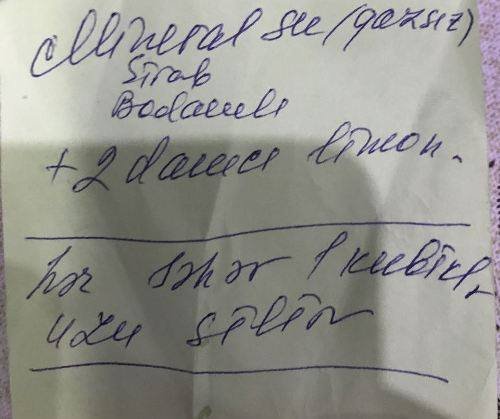 Mineral su (qazsız)
Sirab
Badamlı
+ 2 damcı limon.
hər səhər 1 kubik
üzü silin